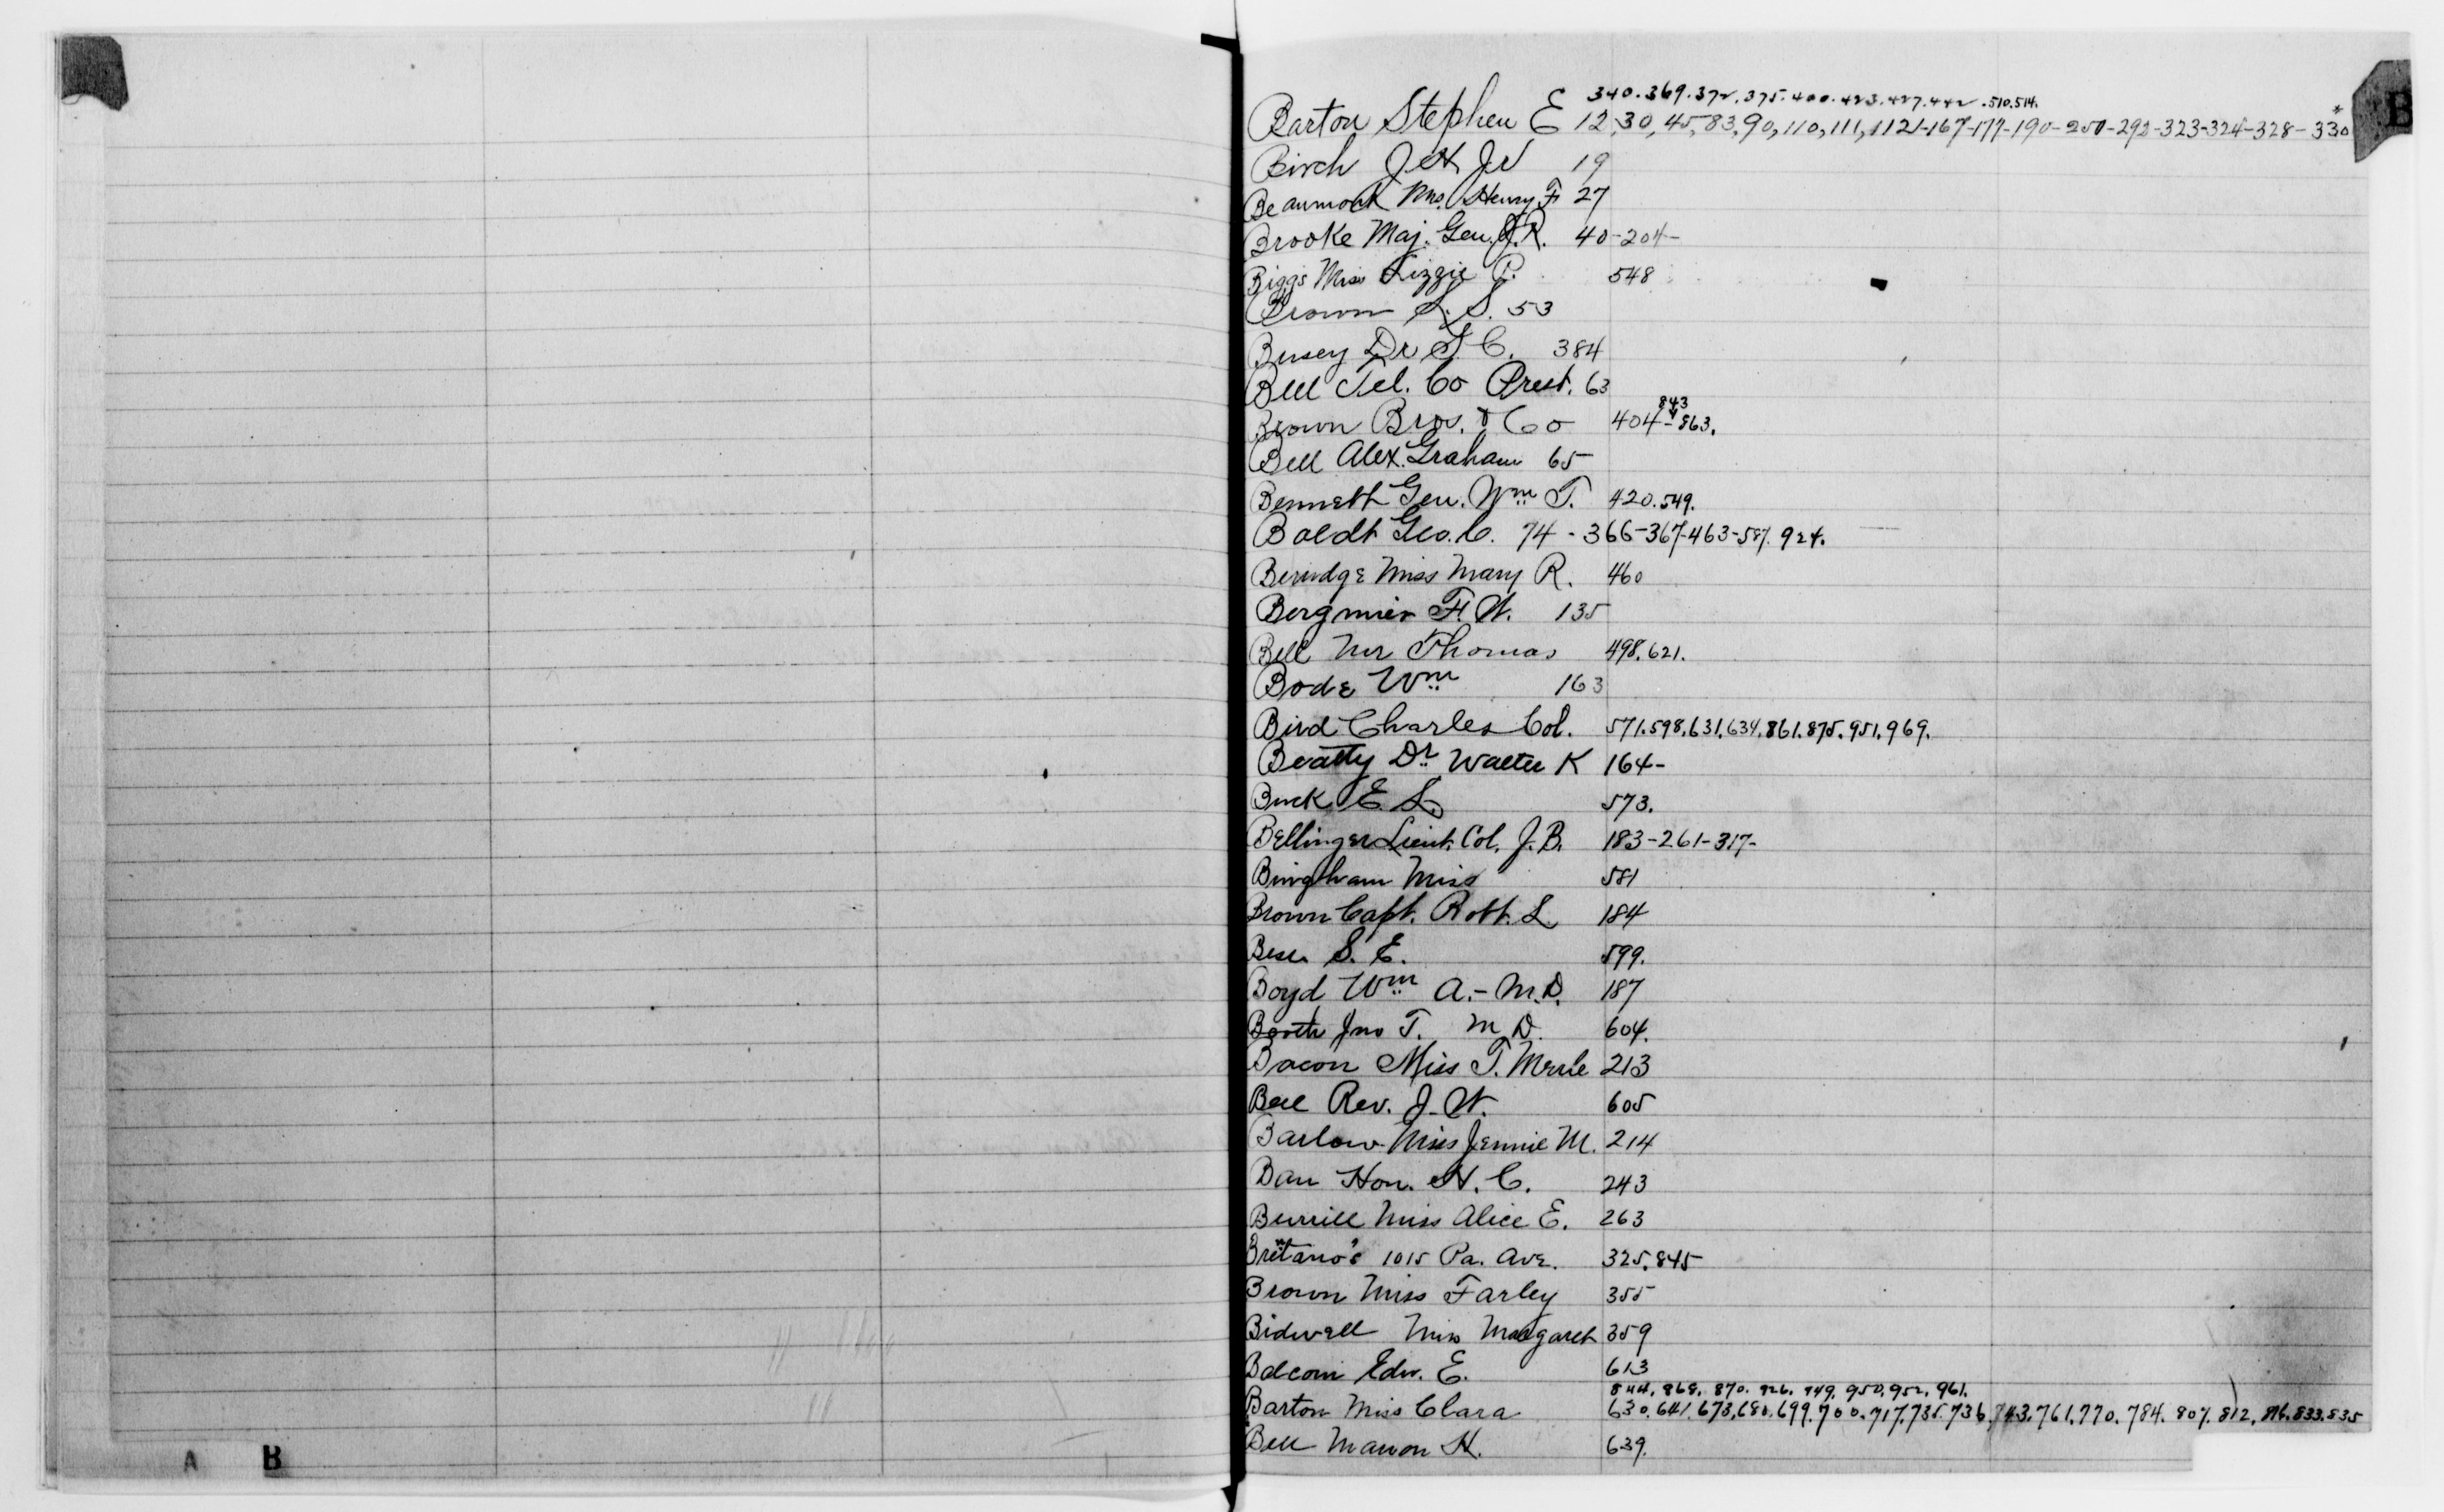 340.369.372.375.400.423.427.442.510.514.
Barton Stephen E 12,30,45,83,90,110,111,1121-167-177-190-250-292-323-324-328-330 *
B
Birch J H Jr 19
Beaumont Mrs. Henry F 27
Brooke Maj. Gen. J.R. 40-204-
Biggs Miss Lizzie P. 548
Brown L.S. 53
Busey Dr S.C. 384
Bell Tel. Co Prest. 63
843
Brown Bros. & Co 404-863.
Bell Alex. Graham 65
Bennett Gen. Wm T. 420.549.
Boldt Geo. C. 74-366-367-463-587.924.
Berridge Miss Mary R. 460
Bergmier F.W. 135
Bell Mr Thomas 498.621.
Bode Wm 163
Bird Charles Col. 571.598.631.634.861.875.951.969.
Beatty Dr. Walter K 164-
Buck E L. 573.
Bellinger Lieut. Col. J.B. 183-261-317-
Bingham Miss 581
Brown Capt. Robt. L 184
S. E. 599.
Boyd Wm A.- M.D. 187
Booth Jno T. M D. 604.
Bacon Miss T. Merle 213
Bell Rev. J. W. 605
Barlow Miss Jennie M. 214
Hon. H. C. 243
Burrill Miss Alice E. 263
Bretano's 1015 Pa. Ave. 325.845
n
Brown Miss Farley 355
Bidwell Miss Margaret 359
Balcom Edw. E. 613
844, 868. 870. 926. 949. 950.952. 961.
Barton Miss Clara 630.641.673.680.699.700.717.735.736.743.761.770.784.807.812.816.833.835
Bell Marion H. 639.
A B